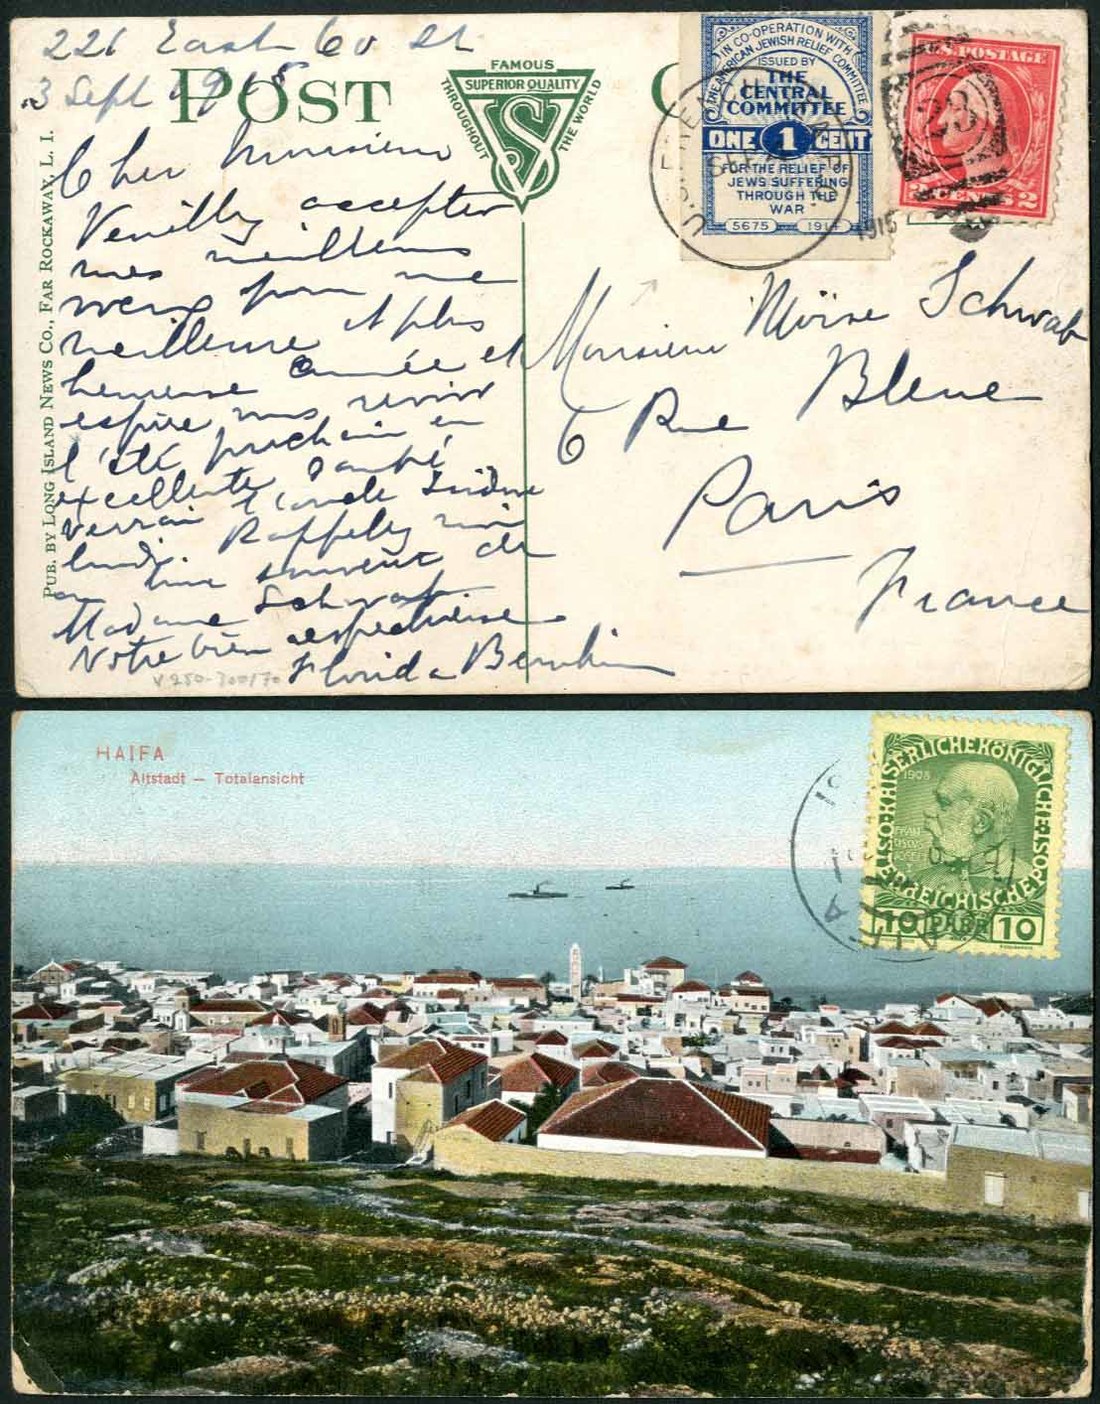 221 East 60 St
3 Sept 1915
POST
FAMOUS
SUPERIOR QUALITY
THROUGHOUT
THE WORLD
PUB. BY LONG ISLAND NEWS CO., FAR ROCKAWAY, L. I.
Cher Monsieur
Veuillez accepter
mes meilleurs
voeux pour une
meilleure et plus
heureuse année et
espère vous revoir
l'été prochain en
excellente santé
verrai l'oncle Isidore
lundi Rappelez moi
au bon souvenir de
Madame Schwab
Votre bien respectueuse
Florida
v 250-300/70
IN CO-OPERATION WITH
THE AMERICAN JEWISH RELIEF COMMITTEE
ISSUED BY
THE
CENTRAL
COMMITTEE
ONE 1 CENT
FOR THE RELIEF OF
JEWS SUFFERING
THROUGH THE
WAR
5675 1914
U.S. POSTAGE
2
23
1915
Monsieur Moïse Schwab
6 Rue Bleue
Paris
France
HAIFA
Altstadt — Totalansicht
KAISERLICHEKÖNIGLICHE
ÖSTERREICHISCHE POST
1908
10 PARA 10